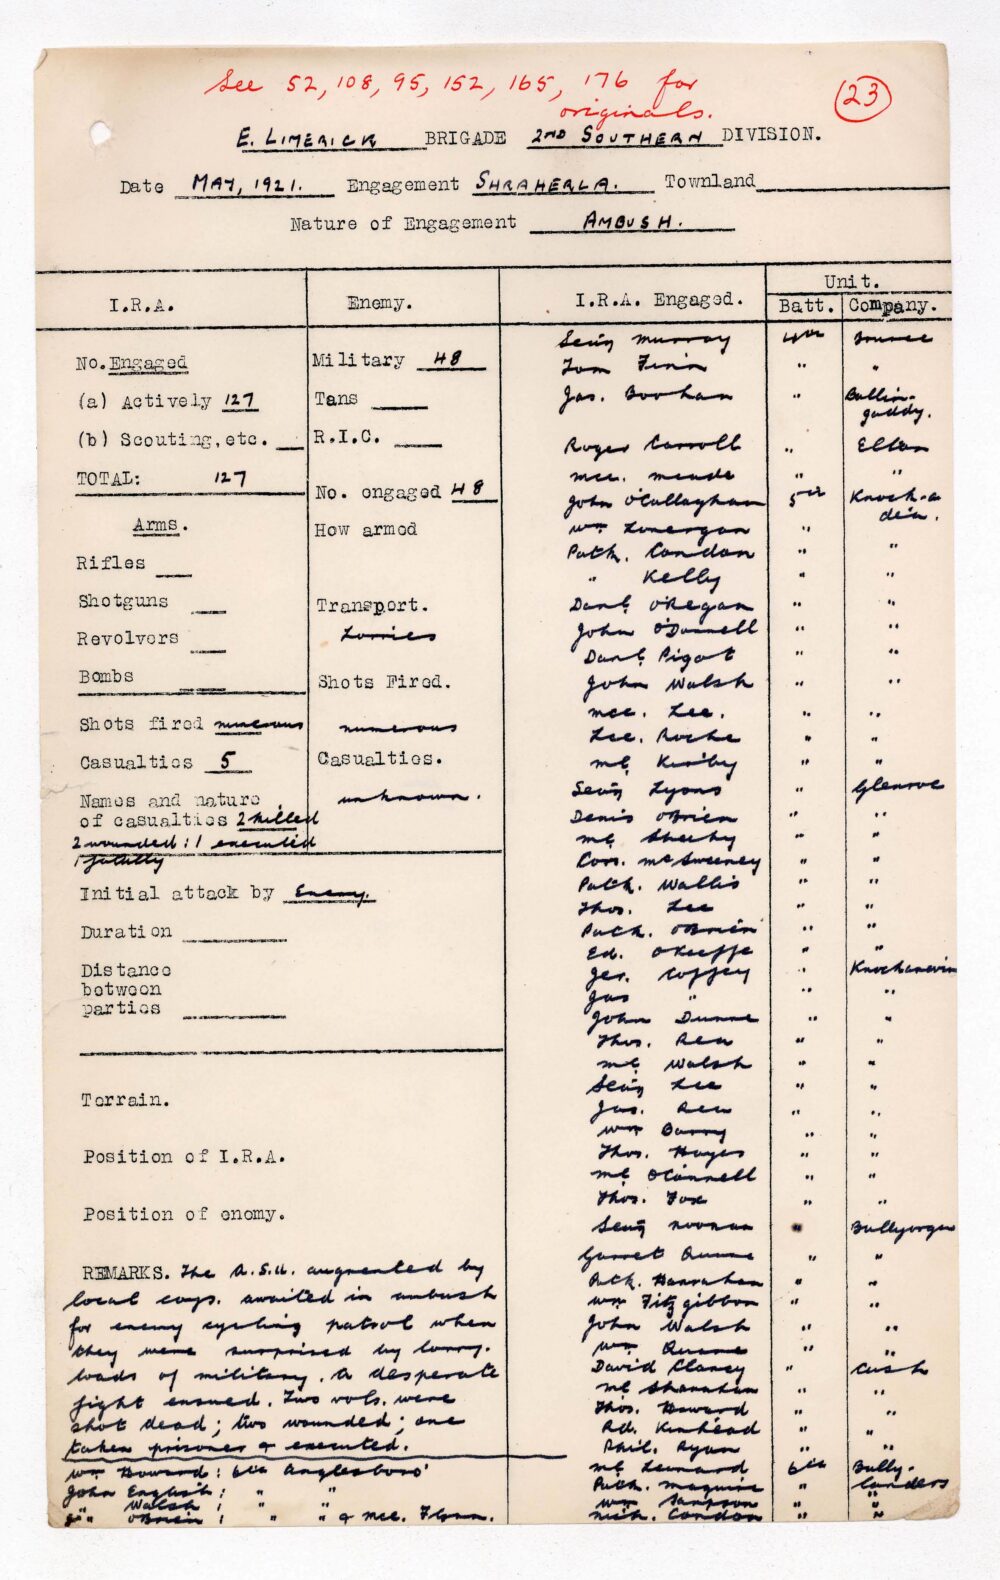 See 52, 108, 95, 152, 165, 176 for
originals.
23
E. LIMERICK BRIGADE 2ND SOUTHERN DIVISION.
Date MAY, 1921. Engagement SHRAHERLA. Townland
Nature of Engagement AMBUSH.
I.R.A.
Enemy.
I.R.A. Engaged.
Unit.
Batt. Company.
No. Engaged
(a) Actively 127
(b) Scouting, etc.
TOTAL: 127
Arms.
Rifles
Shotguns
Revolvers
Bombs
Shots fired numerous
Casualties 5
Names and nature
of casualties 2 killed
2 wounded: 1 executed
1 fatally
Initial attack by Enemy.
Duration
Distance
between
parties
Terrain.
Position of I.R.A.
Position of enemy.
REMARKS. The A.S.U. augmented by
local coys. awaited in ambush
for enemy cycling patrol when
they were surprised by lorry-
loads of military. A desperate
fight ensued. Two vols. were
shot dead; two wounded; one
taken prisoner & executed.
Wm Howard: 6th Anglesboro'
John English; " "
" Walsh; " "
" O'Brien; " " & Mce. Flynn.
Military 48
Tans
R.I.C.
No. engaged 48
How armed
Transport.
Lorries
Shots Fired.
numerous
Casualties.
unknown.
Seán Murray 4th Bruree
Tom Finn " "
Jas. Boohan " Ballin-
gaddy.
Roger Carroll " Elton
Mce. Meade " "
John O'Callaghan 5th Knock-a
dea.
Wm Lonergan "
Patk. Condon " "
" Kelly " "
Danl. O'Regan " "
John O'Donnell " "
Danl. Pigot " "
John Walsh " "
Mce. Lee. " "
Lee. Roche " "
Ml. Kirby " "
Seán Lyons " Glenroe
Denis O'Brien " "
Ml Sheehy " "
Corn. McSweeney " "
Patk. Wallis " "
Thos. Lee " "
Patk. O'Brien " "
Ed. O'Keeffe " "
Jer. Coffey " Knockanevin
Jas " " "
John Dunne " "
Thos. Rea " "
Ml Walsh " "
Seán Lee " "
Jas. Rea " "
Wm Barry " "
Thos. Hayes " "
Ml O'Connell " "
Thos. Fox " "
Seán Noonan " Ballyorgan
Garret Quane " "
Patk. Hanrahan " "
Wm Fitzgibbon " "
John Walsh " "
Wm Quane " "
David Clancy " Cush
Ml Shanahan " "
Thos. Howard " "
Rd. Kinhead " "
Phil. Ryan " "
Ml Leonard 6th Bally-
landers
Patk. Maguire " "
Wm Sampson " "
Mich. Condon " "